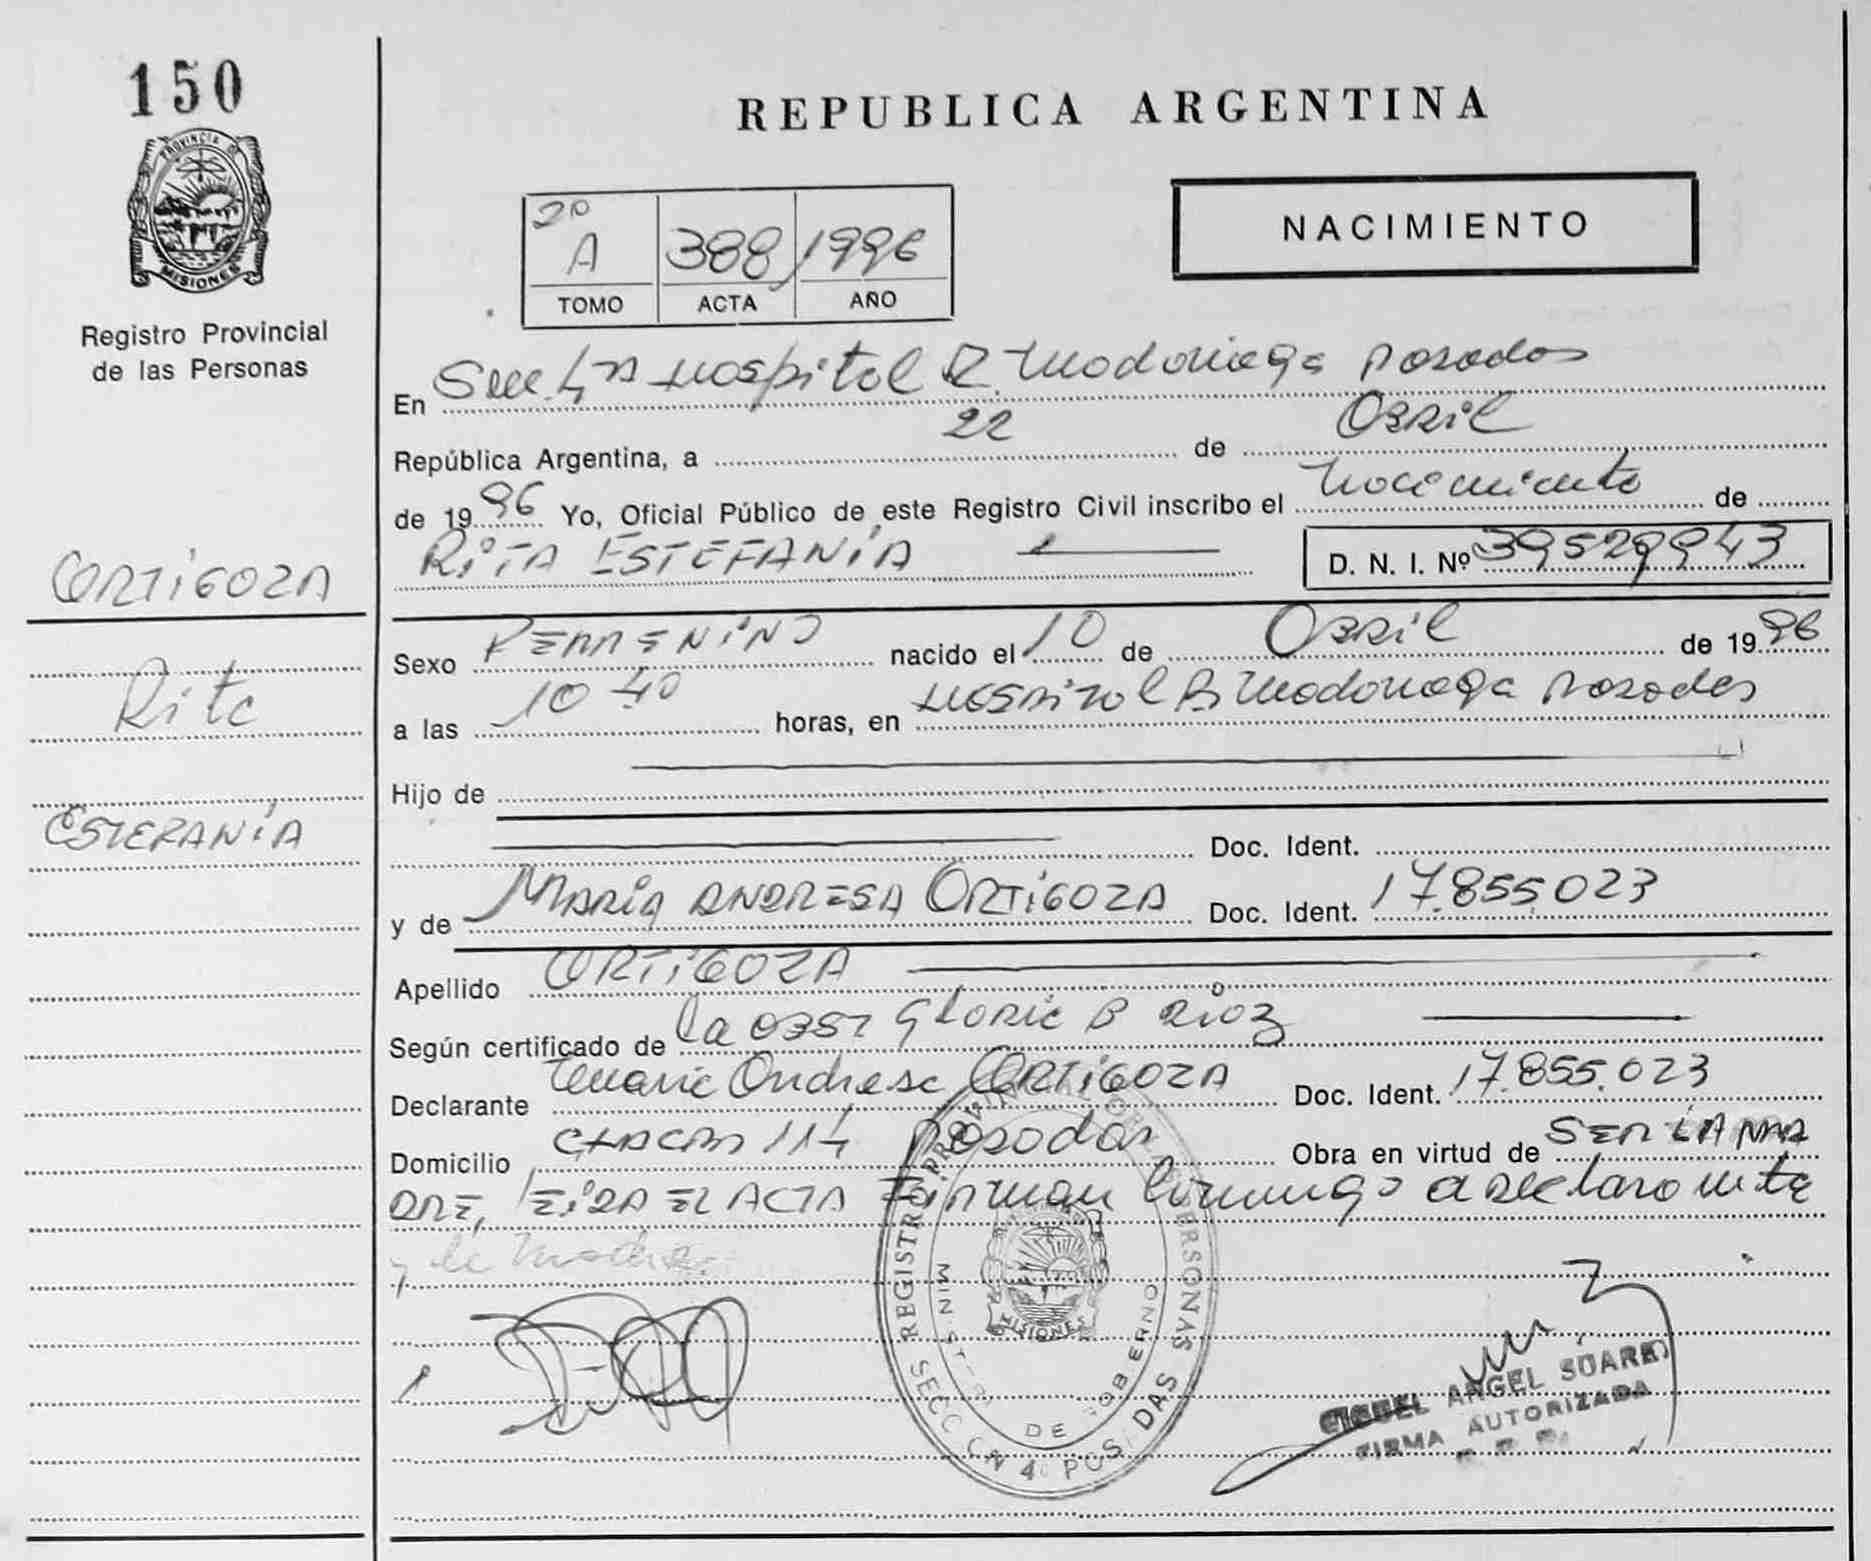 150
PROVINCIA D
MISIONES
Registro Provincial
de las Personas
REPUBLICA ARGENTINA
NACIMIENTO
2º
A 388 1996
TOMO ACTA AÑO
En Secc 4ta Hospital R Madariaga Posadas
República Argentina, a 22 de Abril
de 1996 Yo, Oficial Público de este Registro Civil inscribo el Nacimiento de
RITA ESTEFANÍA D. N. I. Nº 39529943
ORTIGOZA
Rita
ESTEFANÍA
Sexo FEMENINO nacido el 10 de Abril de 1996
a las 10 40 horas, en Hospital R Madariaga Posadas
Hijo de
Doc. Ident.
y de MARÍA ANDRESA ORTIGOZA Doc. Ident. 17.855.023
Apellido ORTIGOZA
Según certificado de la Obst Gloria B Rioz
Declarante María Andresa ORTIGOZA Doc. Ident. 17.855.023
Domicilio CHACAS 114 Posadas Obra en virtud de SER LA MAD
DRE, LEIDA EL ACTA Firman conmigo la declarante
y la madre.
REGISTRO PROVINCIAL DE LAS PERSONAS
MINISTERIO DE GOBIERNO
MISIONES
SECCION 4º POSADAS
MIGUEL ANGEL SUAREZ
FIRMA AUTORIZADA